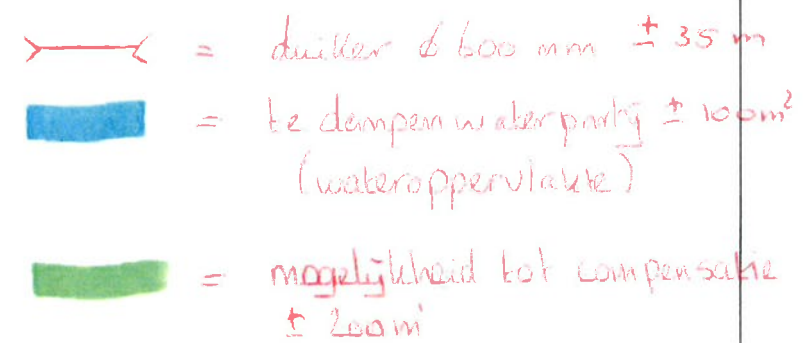 = duiker ø 600 mm ± 35 m
= te dempen waterpartij ± 100m²
(wateroppervlakte)
= mogelijkheid tot compensatie
± 200m'